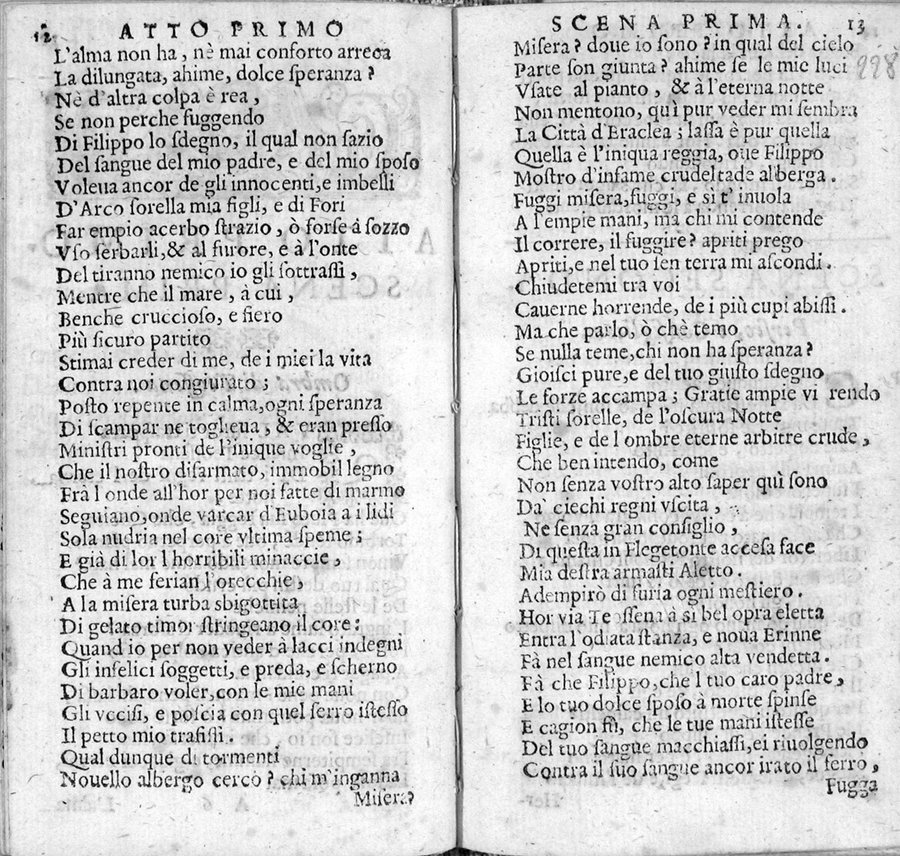 12 ATTO PRIMO
L'alma non ha, nè mai conforto arreca
La dilungata, ahime, dolce ſperanza?
Nè d'altra colpa è rea,
Se non perche fuggendo
Di Filippo lo ſdegno, il qual non ſazio
Del ſangue del mio padre, e del mio ſpoſo
Voleua ancor de gli innocenti, e imbelli
D'Arco ſorella mia figli, e di Fori
Far empio acerbo ſtrazio, ò forſe à ſozzo
Vſo ſerbarli, & al furore, e à l'onte
Del tiranno nemico io gli ſottraſſi,
Mentre che il mare, à cui,
Benche cruccioſo, e fiero
Più ſicuro partito
Stimai creder di me, de i miei la vita
Contra noi congiurato;
Poſto repente in calma, ogni ſperanza
Di ſcampar ne toglieua, & eran preſſo
Miniſtri pronti de l'inique voglie,
Che il noſtro diſarmato, immobil legno
Frà l onde all'hor per noi fatte di marmo
Seguiano, onde varcar d'Euboia a i lidi
Sola nudria nel core vltima ſpeme;
E già di lor l horribili minaccie,
Che à me ferian l'orecchie,
A la miſera turba sbigottita
Di gelato timor ſtringeano il core:
Quand'io per non veder à lacci indegni
Gli infelici ſoggetti, e preda, e ſcherno
Di barbaro voler, con le mie mani
Gli vcciſi, e poſcia con quel ferro iſteſſo
Il petto mio trafiſſi.
Qual dunque di tormenti
Nouello albergo cerco? chi m'inganna
Miſera?
SCENA PRIMA. 13
998
Miſera? doue io ſono? in qual del cielo
Parte ſon giunta? ahime ſe le mie luci
Vſate al pianto, & à l'eterna notte
Non mentono, quì pur veder mi ſembra
La Città d'Eraclea; laſſa è pur quella
Quella è l'iniqua reggia, oue Filippo
Moſtro d'infame crudeltade alberga.
Fuggi miſera, fuggi, e sì t' inuola
A l'empie mani, ma chi mi contende
Il correre, il fuggire? apriti prego
Apriti, e nel tuo ſen terra mi aſcondi.
Chiudetemi trà voi
Cauerne horrende, de i più cupi abiſſi.
Ma che parlo, ò chè temo
Se nulla teme, chi non ha ſperanza?
Gioiſci pure, e del tuo giuſto ſdegno
Le forze accampa; Gratie ampie vi rendo
Triſti ſorelle, de l'oſcura Notte
Figlie, e de l ombre eterne arbitre crude,
Che ben intendo, come
Non ſenza voſtro alto ſaper quì ſono
Da' ciechi regni vſcita,
Ne ſenza gran conſiglio,
Di queſta in Flegetonte acceſa face
Mia deſtra armaſti Aletto.
Adempirò di furia ogni meſtiero.
Hor via Te oſſena à sì bel opra eletta
Entra l'odiata ſtanza, e noua Erinne
Fà nel ſangue nemico alta vendetta.
Fà che Filippo, che l tuo caro padre,
E lo tuo dolce ſpoſo à morte ſpinſe
E cagion fù, che le tue mani iſteſſe
Del tuo ſangue macchiaſſi, ei riuolgendo
Contra il ſuo ſangue ancor irato il ferro,
Fugga